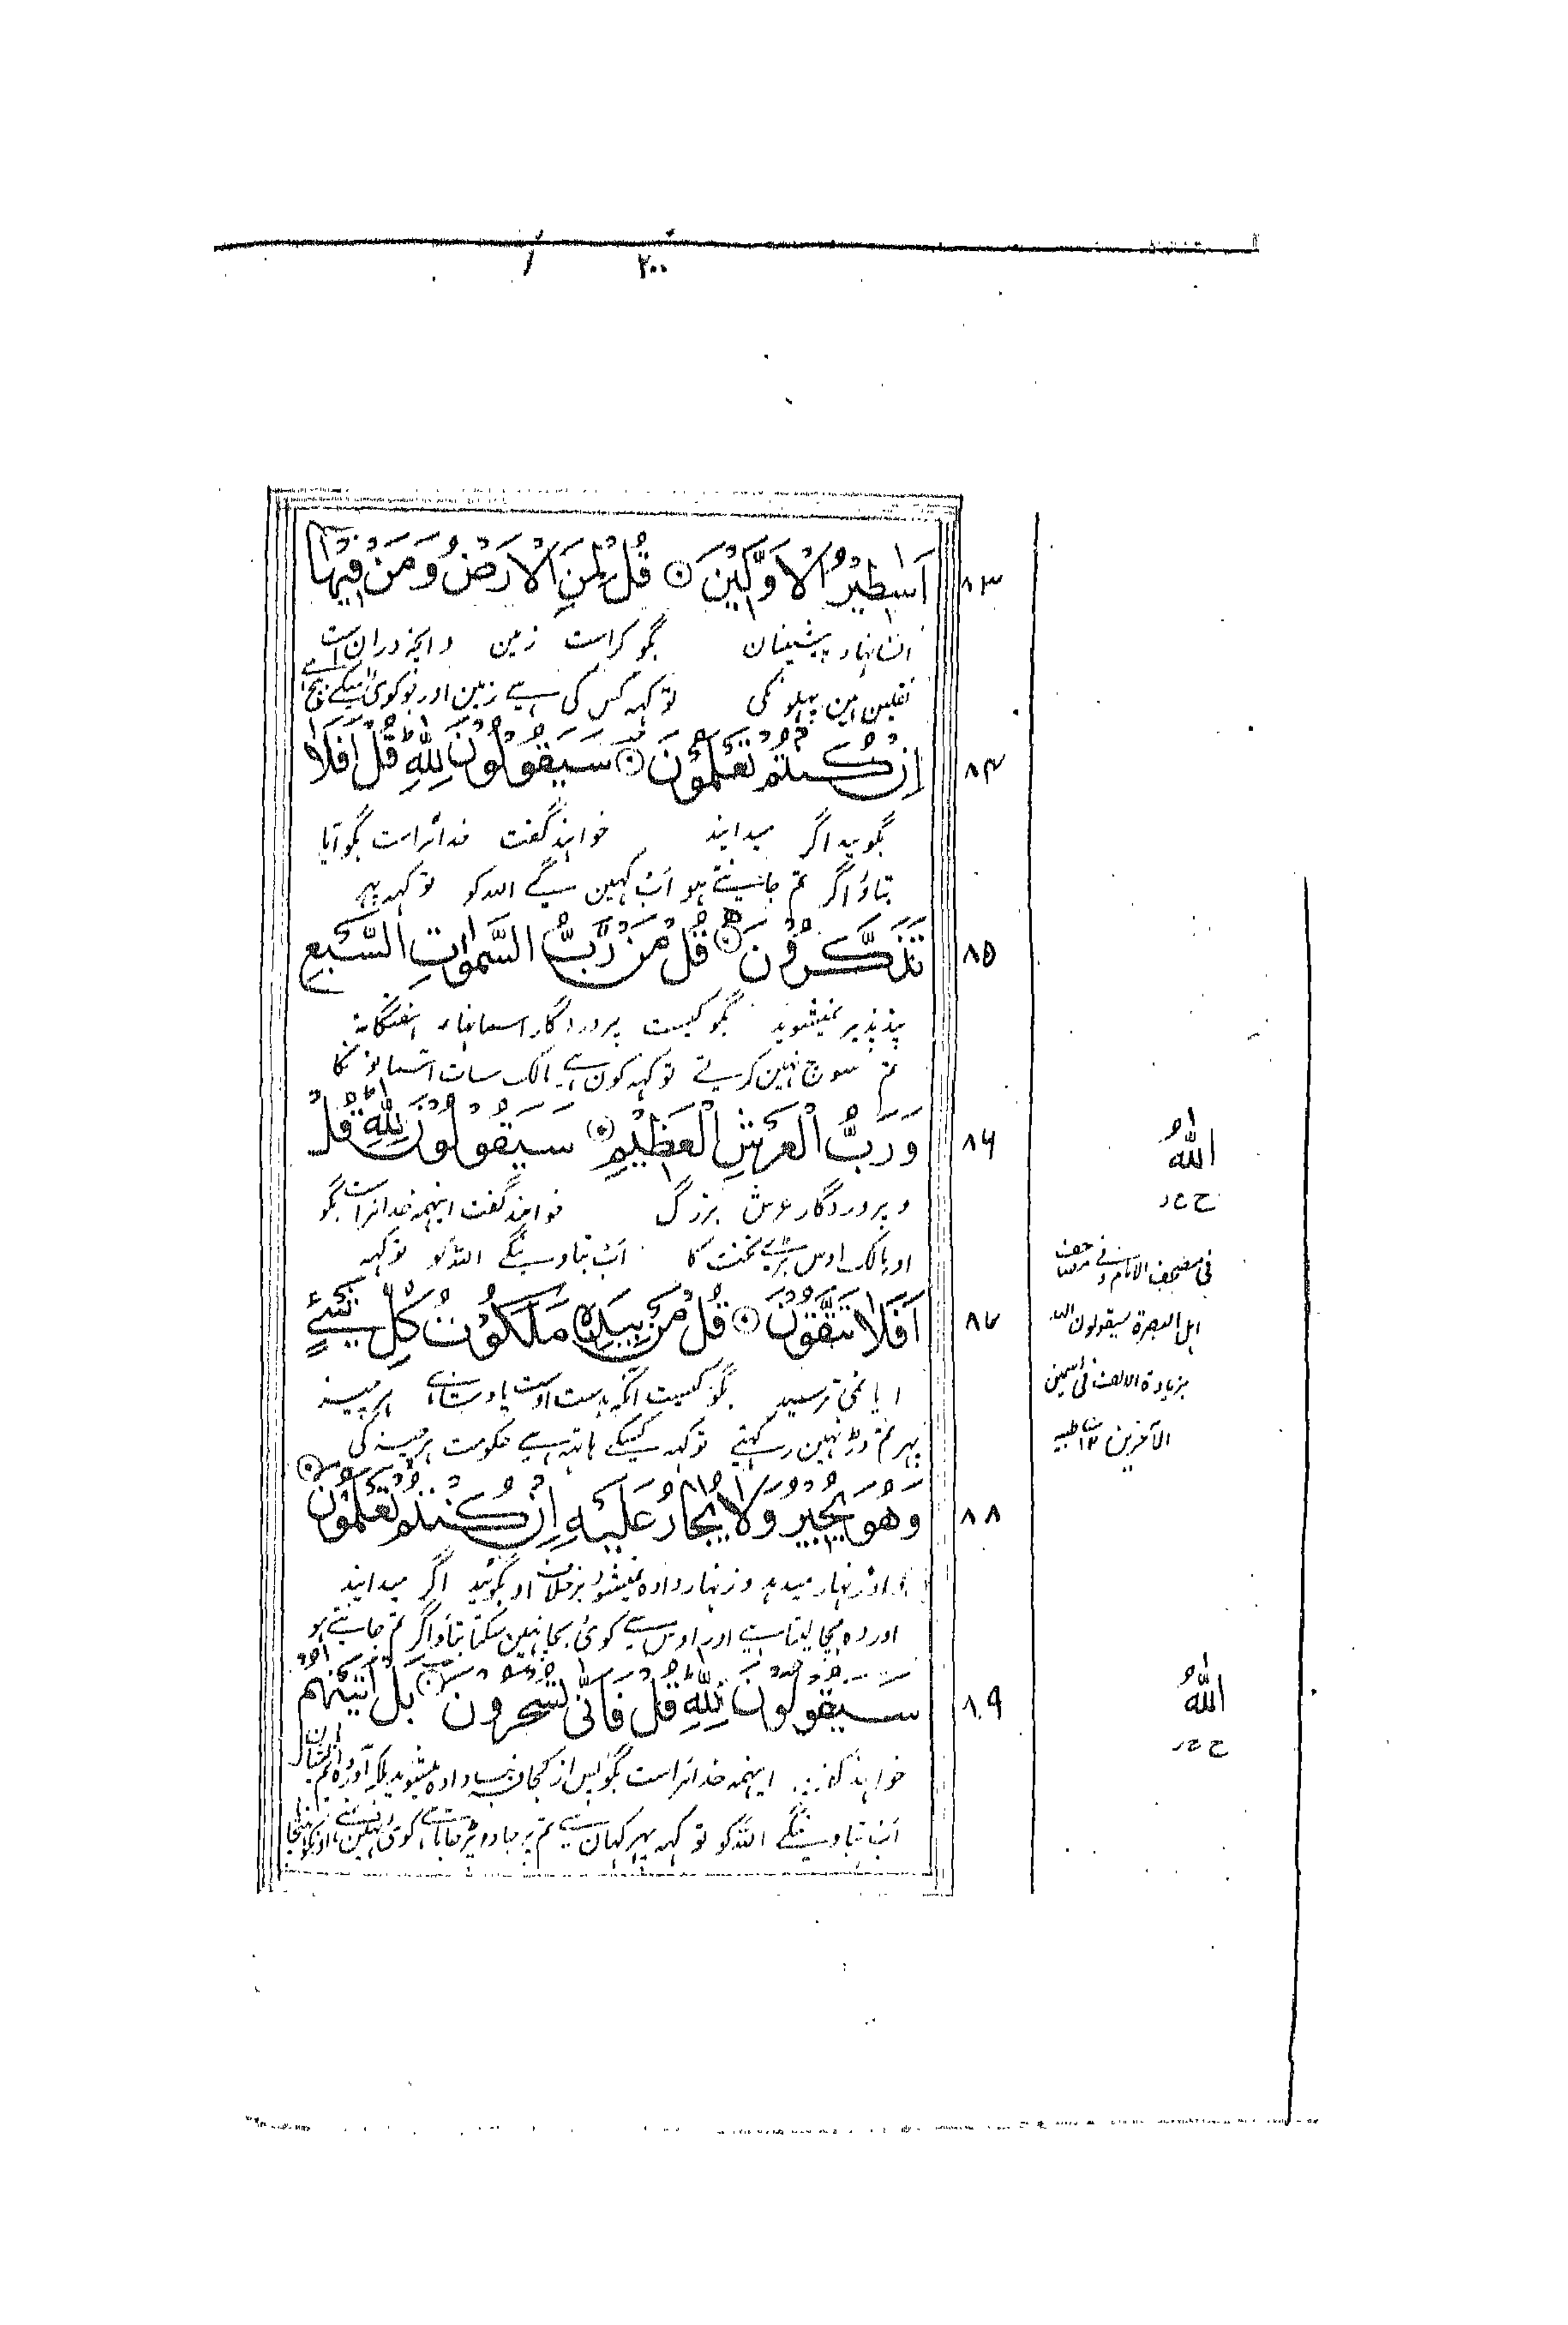 ۲۰۰
اَسَاطِيْرُ الْاَوَّلِيْنَ ۞ قُلْ لِّمَنِ الْاَرْضُ وَمَنْ فِيْهَا ۸۳
افسانهاء پیشینان بگو کراست زمین و انچه دران است
نقلین ہین پہلونکی تو کہہ کس کی ہے زمین اور جو کوئی اسکے بیچ ہے
اِنْ كُنْتُمْ تَعْلَمُوْنَ ۞ سَيَقُوْلُوْنَ لِلّٰهِ قُلْ اَفَلَا ۸۴
بگوید اگر میدانید خواہند گفت خدائراست بگو آیا
بتاؤ اگر تم جانتے ہو اَب کہین گے اللہ کو تو کہہ پہر
تَذَكَّرُوْنَ ۞ قُلْ مَنْ رَّبُّ السَّمٰوٰتِ السَّبْعِ ۸۵
پندپذیر نمیشوید بگو کیست پروردگار اسمانهاء هفتگانه
تم سوچ نہین کرتے تو کہہ کون ہے مالک سات اسمانونکا
وَرَبُّ الْعَرْشِ الْعَظِيْمِ ۞ سَيَقُوْلُوْنَ لِلّٰهِ قُلْ ۸۶
و پروردگار عرش بزرگ خواہند گفت اینهمه خدائراست بگو
اور مالک اوس بڑے تخت کا اَب بتاوینگے اللہ کو تو کہہ
اَفَلَا تَتَّقُوْنَ ۞ قُلْ مَنْۢ بِيَدِهٖ مَلَكُوْتُ كُلِّ شَيْءٍ ۸۷
ایا نمی ترسید بگو کیست انکه بدست اوست پادشاہی هر چیز
پہر تم ڈر نہین رکہتے تو کہہ کسکے ہاتہہ ہے حکومت ہر چیز کی
وَهُوَ يُجِيْرُ وَلَا يُجَارُ عَلَيْهِ اِنْ كُنْتُمْ تَعْلَمُوْنَ ۞ ۸۸
و او زنهار میدهد و زنهار داده نمیشود برخلاف او بگوئید اگر میدانید
اور وہ بچا لیتا ہے اور اوس سے کوئی بچا نہین سکتا بتاؤ اگر تم جانتے ہو
سَيَقُوْلُوْنَ لِلّٰهِ قُلْ فَاَنّٰى تُسْحَرُوْنَ ۞ بَلْ اَتَيْنٰهُمْ ۸۹
خواہند گفت اینهمه خدائراست بگو پس از کجا فریب داده میشوید بلکه آورده ایم
اَب بتاوینگے اللہ کو تو کہہ پہر کہان سے تم پر جادو پڑ جاتا ہے کوئی نہین
اللّٰهُ
ح ع ر
فی مصحف الامام و مصاحف
اهل البصرة سیقولون الله
بزیادة الالف فی اسمین
الآخرین ۱۲
اللّٰهُ
ح ع ر